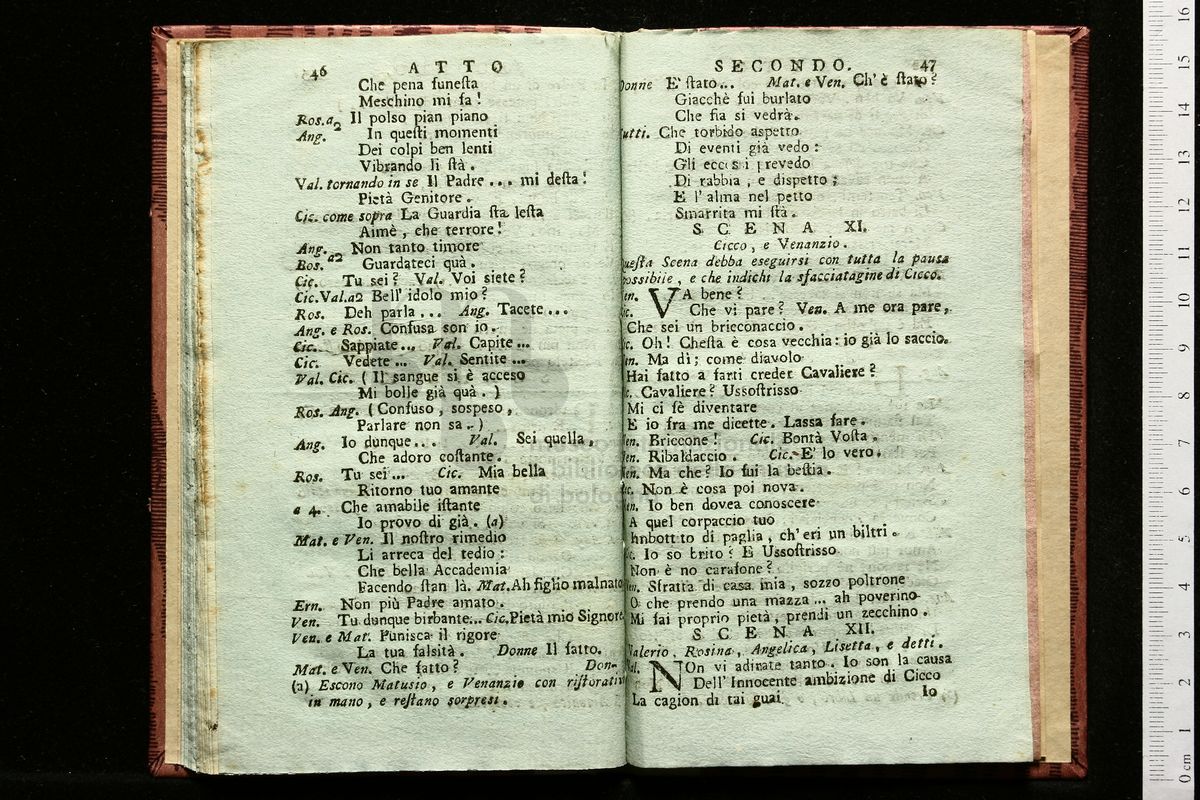 46 ATTO
Che pena funeſta
Meſchino mi fa!
Ros.a2 Il polso pian piano
Ang. In queſti momenti
Dei colpi ben lenti
Vibrando li ſtà.
Val. tornando in se Il Padre ... mi deſta!
Pietà Genitore.
Cic. come sopra La Guardia ſta leſta
Aimè, che terrore!
Ang. Non tanto timore
Ros. a2 Guardateci quà.
Cic. Tu sei? Val. Voi siete?
Cic.Val.a2 Bell' idolo mio?
Ros. Deh parla... Ang. Tacete...
Ang. e Ros. Confusa son io.
Cic. Sappiate... Val. Capite...
Cic. Vedete... Val. Sentite...
Val. Cic. (Il sangue si è acceso
Mi bolle già quà.)
Ros. Ang. (Confuso, sospeso,
Parlare non sa.)
Ang. Io dunque... Val. Sei quella,
Che adoro coſtante.
Ros. Tu sei... Cic. Mia bella
Ritorno tuo amante
a 4. Che amabile iſtante
Io provo di già. (a)
Mat. e Ven. Il noſtro rimedio
Li arreca del tedio:
Che bella Accademia
Facendo ſtan là. Mat. Ah figlio malnato
Ern. Non più Padre amato.
Ven. Tu dunque birbante... Cic. Pietà mio Signore
Ven. e Mat. Punisca il rigore
La tua falsità. Donne Il fatto.
Mat. e Ven. Che fatto? Don-
(a) Escono Matusio, e Venanzio con riſtorativi
in mano, e reſtano sorpresi.
SECONDO. 47
Donne E' ſtato... Mat. e Ven. Ch' è ſtato?
Giacchè fui burlato
Che fia si vedrà.
utti. Che torbido aspetto
Di eventi già vedo:
Gli eccessi prevedo
Di rabbia, e dispetto;
E l' alma nel petto
Smarrita mi ſtà.
SCENA XI.
Cicco, e Venanzio.
ueſta Scena debba eseguirsi con tutta la pausa
possibile, e che indichi la sfacciatagine di Cicco.
en. VA bene?
ic. Che vi pare? Ven. A me ora pare,
Che sei un bricconaccio.
c. Oh! Cheſta è cosa vecchia: io già lo saccio.
en. Ma dì; come diavolo
Hai fatto a farti creder Cavaliere?
c. Cavaliere? Ussoſtrisso
Mi ci fè diventare
E io fra me dicette. Lassa fare.
en. Briccone! Cic. Bontà Voſta.
en. Ribaldaccio. Cic. E' lo vero.
en. Ma che? Io fui la beſtia.
ic. Non è cosa poi nova.
en. Io ben dovea conoscere
A quel corpaccio tuo
Imbottito di paglia, ch' eri un biltri.
c. Io so brito? E Ussoſtrisso
Non è no carafone?
en. Sfratta di casa mia, sozzo poltrone
O che prendo una mazza... ah poverino
Mi fai proprio pietà, prendi un zecchino.
SCENA XII.
Valerio, Rosina, Angelica, Lisetta, e detti.
Val. NOn vi adirate tanto. Io son la causa
Dell' Innocente ambizione di Cicco
La cagion di tai guai. Io